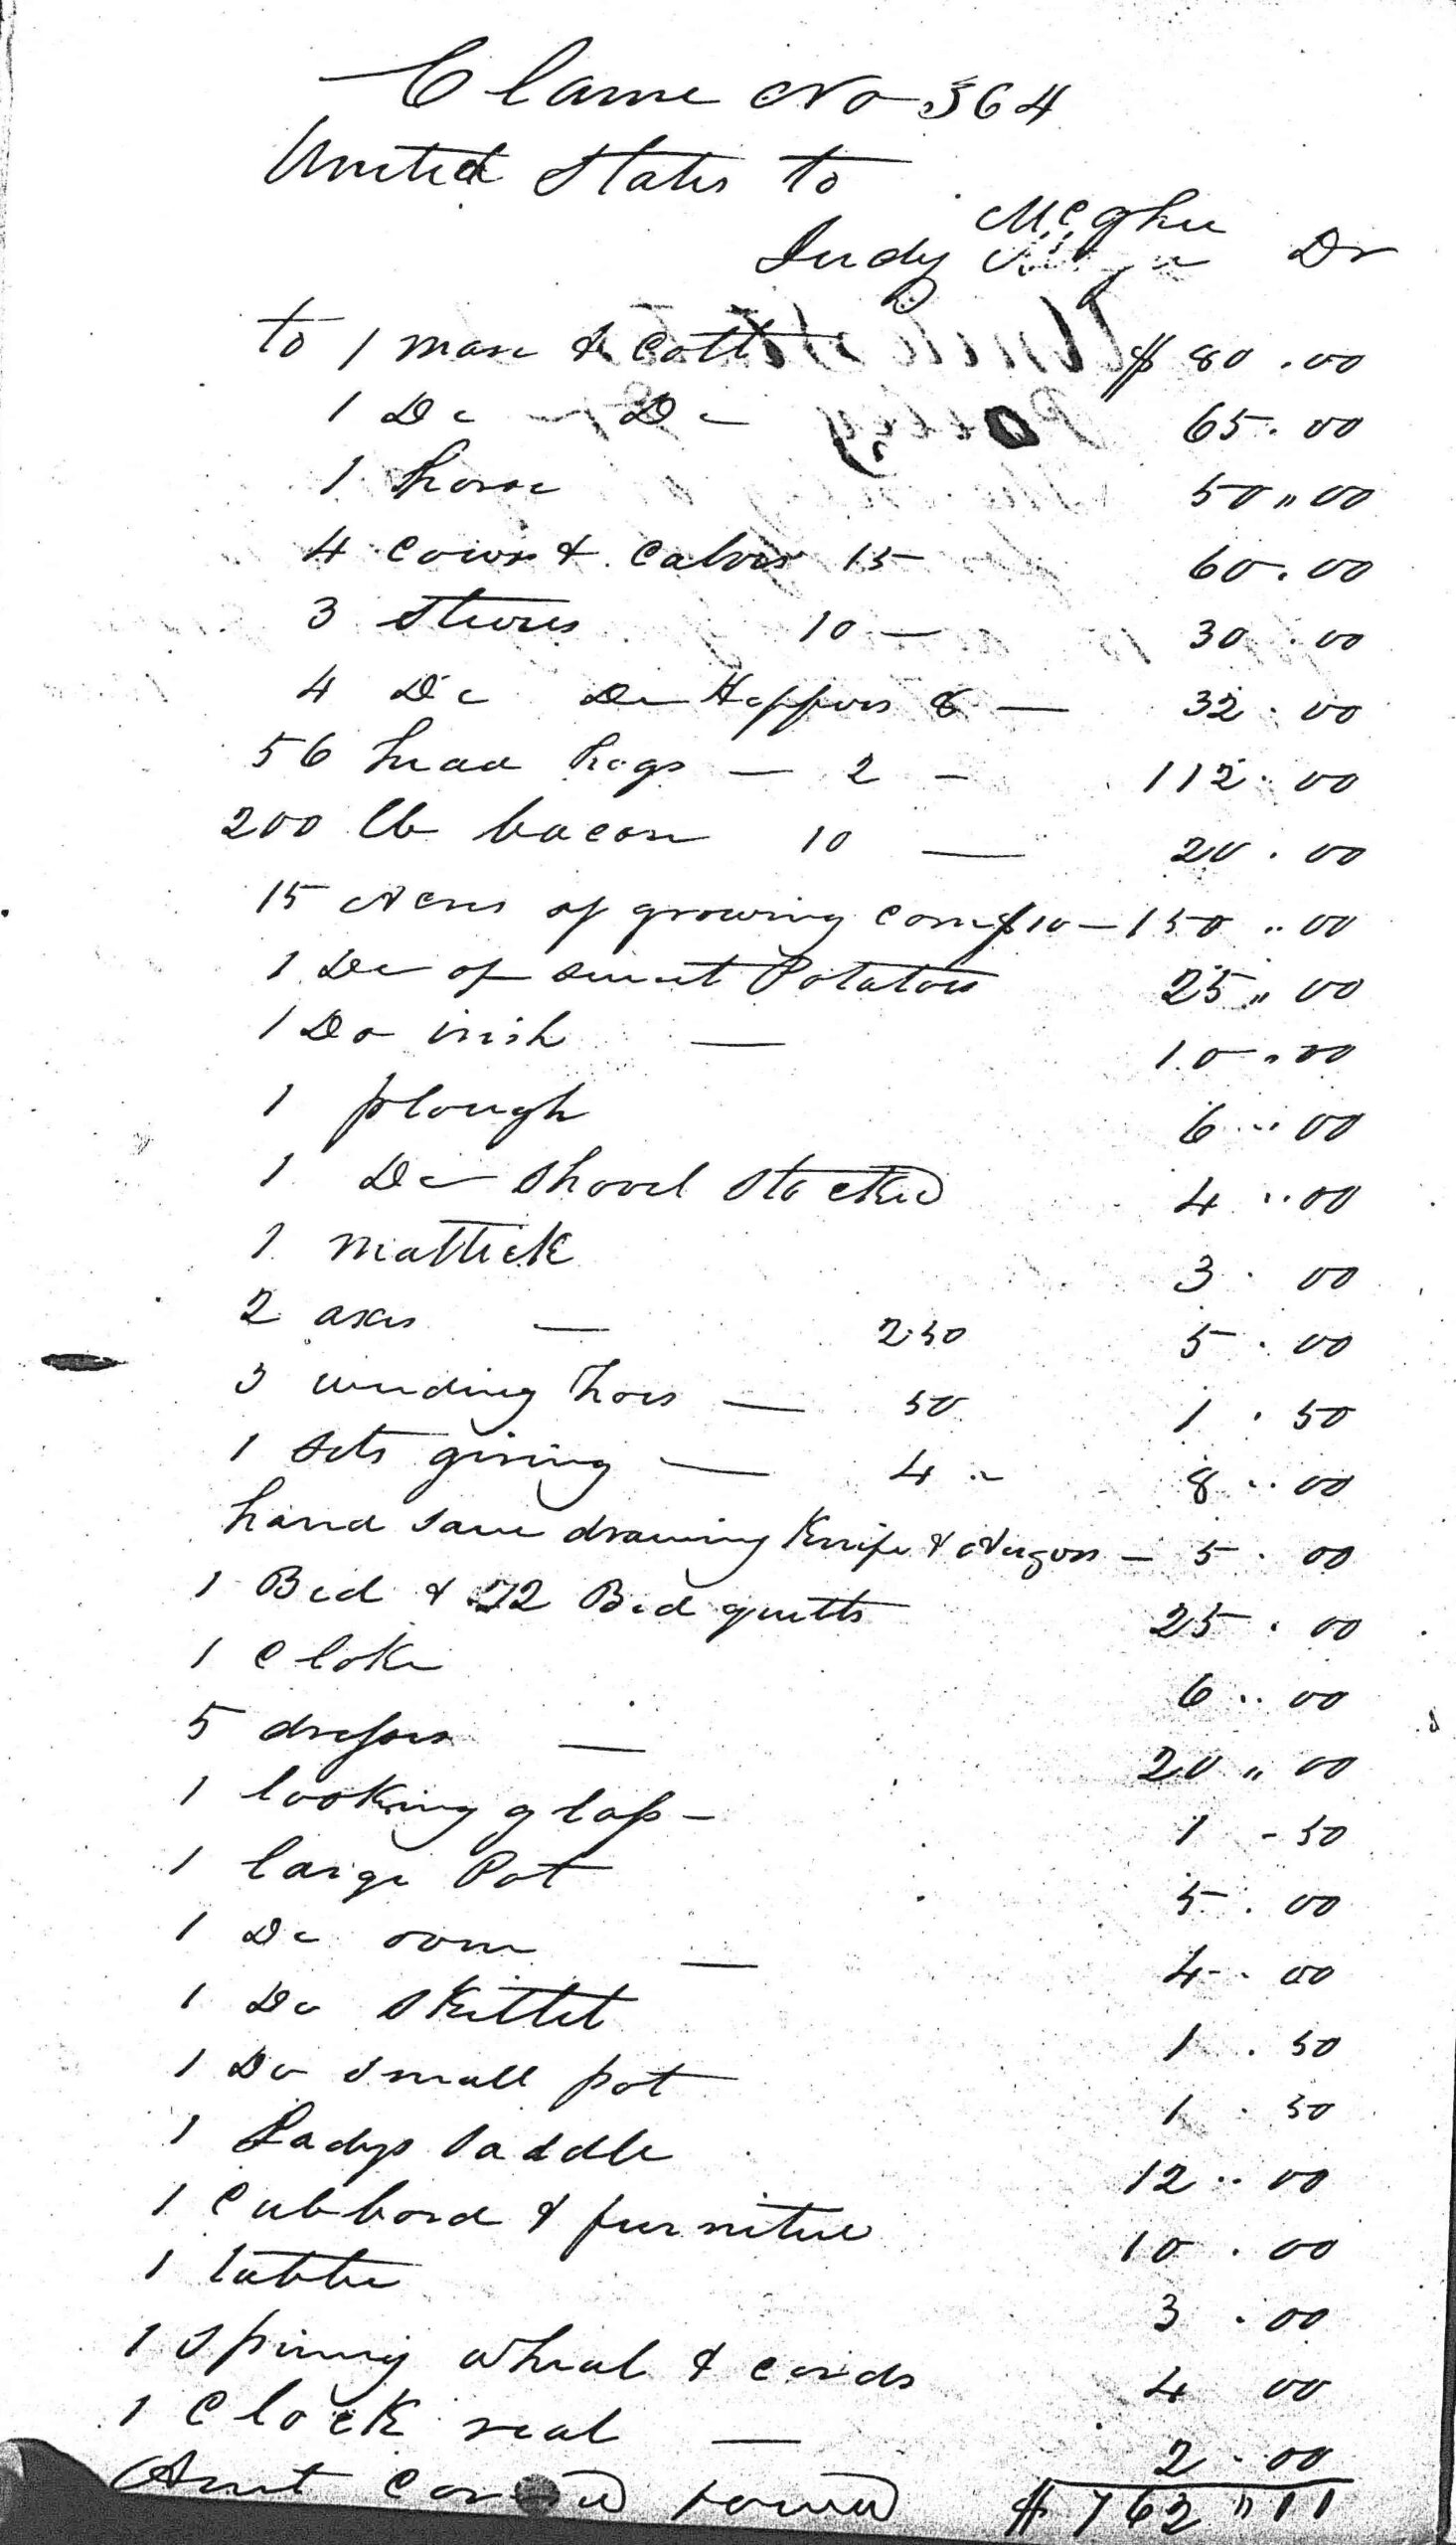 Clame No 364
United States to
McGhee
Judy Dr
to 1 mare & Colt $ 80.00
1 Do Do 65.00
1 horse 50"00
4 Cows & Calves 15 — 60.00
3 Steeres 10 — 30.00
4 Do Do Heffers 8 — 32.00
56 head hogs — 2 — 112.00
200 lb bacon 10 — 20.00
15 Acres of growing Corn $10 — 150"00
1 Do of sweet Potatoes 25"00
1 Do irish — 10"00
1 plough 6"00
1 Do Shovel Stocked 4"00
1 Mattick 3.00
2 axes — 2.50 5.00
3 weeding hoes — 50 1.50
1 Sets giring — 4 " 8"00
hand Saw drawing Knife & Augors — 5.00
1 Bed & Bed quilts 25.00
1 Cloke 6"00
5 dresses — 20"00
1 looking glass — 1-50
1 large Pot 5.00
1 Do oven — 4-.00
1 Do Skittlet 1.50
1 Do Small pot 1.50
1 Ladys Saddle 12"00
1 Cubbord & furniture 10.00
1 table 3.00
1 Spining Wheal & Cards 4 00
1 Clock real — 2.00
Amt $ 762"11